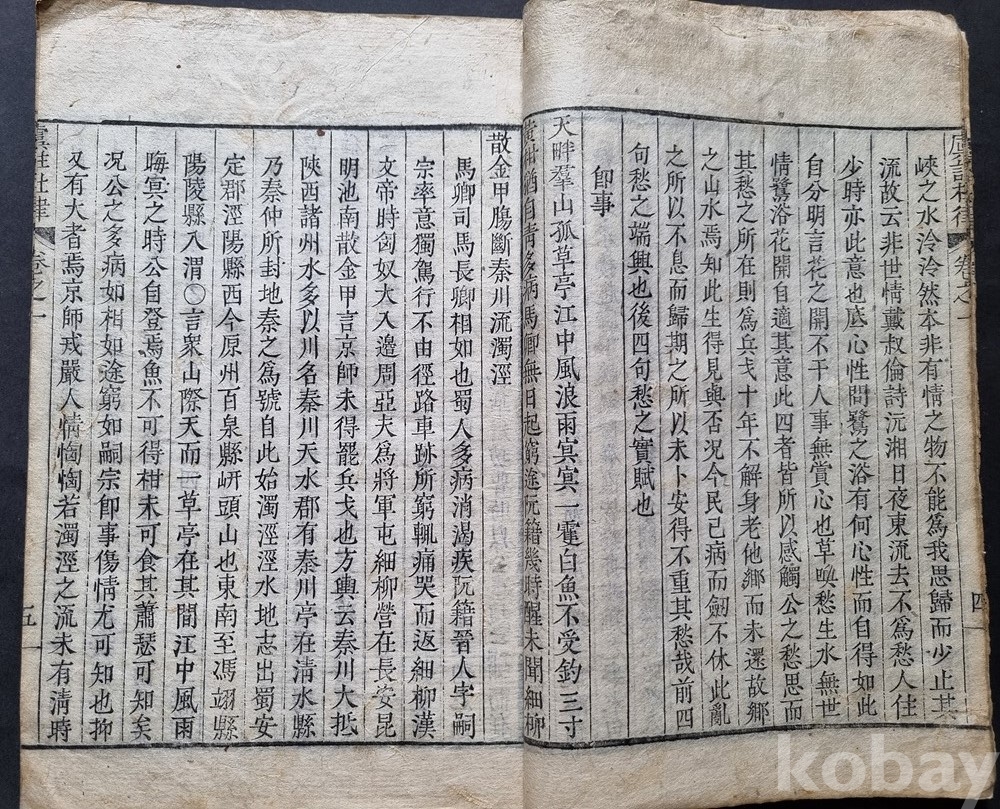 卷之一 四
峽之水泠泠然本非有情之物不能爲我思歸而少止其
流故云非世情戴叔倫詩沅湘日夜東流去不爲愁人住
少時亦此意也底心性問鷺之浴有何心性而自得如此
自分明言花之開不干人事無賞心也草喚愁生水無世
情鷺浴花開自適其意此四者皆所以感觸公之愁思而
其愁之所在則爲兵戈十年不解身老他鄉而未還故鄉
之山水焉知此生得見與否況今民已病而劒不休此亂
之所以不息而歸期之所以未卜安得不重其愁哉前四
句愁之端興也後四句愁之實賦也
即事
天畔羣山孤草亭江中風浪雨冥冥一䨇白魚不受釣三寸
黃柑猶自靑多病馬卿無日起窮途阮籍幾時醒未聞細柳
散金甲腸斷秦川流濁涇
馬卿司馬長卿相如也蜀人多病消渴疾阮籍晉人字嗣
宗率意獨駕行不由徑路車跡所窮輒痛哭而返細柳漢
文帝時匈奴大入邊周亞夫爲將軍屯細柳營在長安昆
明池南散金甲言京師未得罷兵戈也方輿云秦川大抵
陜西諸州水多以川名秦川天水郡有秦川亭在清水縣
乃秦仲所封地秦之爲號自此始濁涇涇水地志出蜀安
定郡涇陽縣西今原州百泉縣岍頭山也東南至馮翊縣
陽陵縣入渭○言衆山際天而一草亭在其間江中風雨
晦冥之時公自登焉魚不可得柑未可食其蕭瑟可知矣
況公之多病如相如途窮如嗣宗即事傷情尤可知也抑
又有大者焉京師戒嚴人情恟恟若濁涇之流未有清時
虞註杜律 卷之一 五
kobay